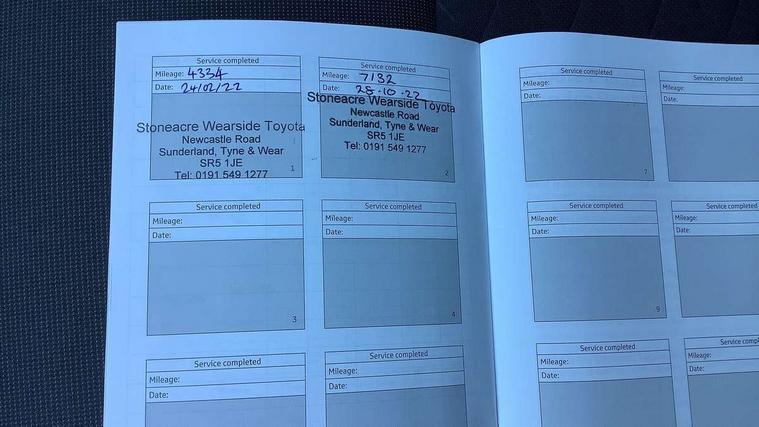 Service completed
Mileage: 4334
Date: 24/02/22
Stoneacre Wearside Toyota
Newcastle Road
Sunderland, Tyne & Wear
SR5 1JE
Tel: 0191 549 1277
1
Service completed
Mileage: 7132
Date: 28-10-22
Stoneacre Wearside Toyota
Newcastle Road
Sunderland, Tyne & Wear
SR5 1JE
Tel: 0191 549 1277
2
Service completed
Mileage:
Date:
3
Service completed
Mileage:
Date:
4
Service completed
Mileage:
Date:
Service completed
Mileage:
Date:
Service completed
Mileage:
Date:
7
Service completed
Mileage:
Date:
Service completed
Mileage:
Date:
9
Service completed
Mileage:
Date:
Service completed
Mileage:
Date:
Service compl
Mileage:
Date: